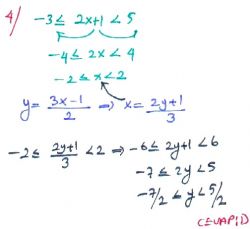 4/ -3 ≤ 2x+1 < 5
-4 ≤ 2x < 4
-2 ≤ x < 2
y = 3x-1/2 ⇒ x = 2y+1/3
-2 ≤ 2y+1/3 < 2 ⇒ -6 ≤ 2y+1 < 6
-7 ≤ 2y < 5
-7/2 ≤ y < 5/2
(CEVAP: D)